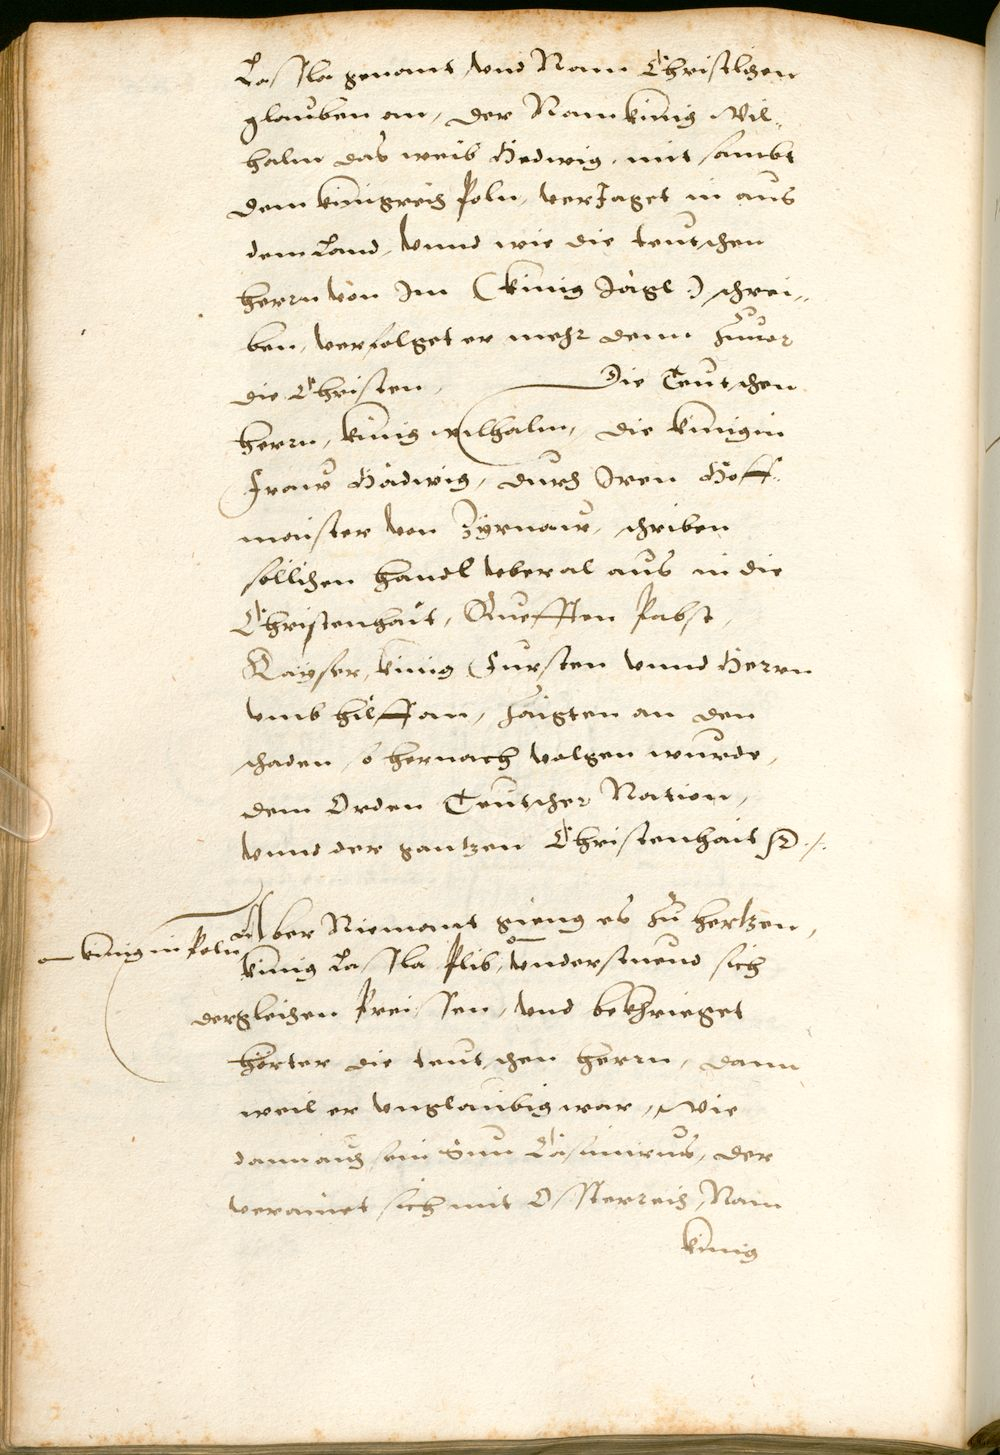 Lassla genant, vnd Nam Christlichen
glauben an, der Nam künig Wil¬
halm das weib Hedwig, mit sambt
dem künigreich Poln, verJaget in aus
dem Land, Vnnd wie die teutschen
herrn von Jm (künig Jägl:) schrei¬
ben, verfolget er mehr denn zuuor
die Christen, Die Teutschen
herrn, künig wilhalm, die künigin
Fraw Hädwig, durch Jren Hoff¬
maister von Zyrnaw, schriben
söllichen handl vberal aus in die
Christenhait, Ruefften Pabst,
Kayser, künig Fursten vnnd Herrn
vmb hilff an, zaigten an den
schaden, so hernach volgen wurde,
dem Orden Teutscher Nation,
vnnd der gantzen Christenhait etc./.
Aber Niemant gieng es zu hertzen,
künig in Poln
künig Lassla Plib, vnderstuend sich
dergleichen Preissen, vnd bekhrieget
hörter die teutschen herrn, dann
weil er vnglaubig war, Wie
dann auch sein Sun Casimirus, der
verainet sich mit Österreich, Nam
künig